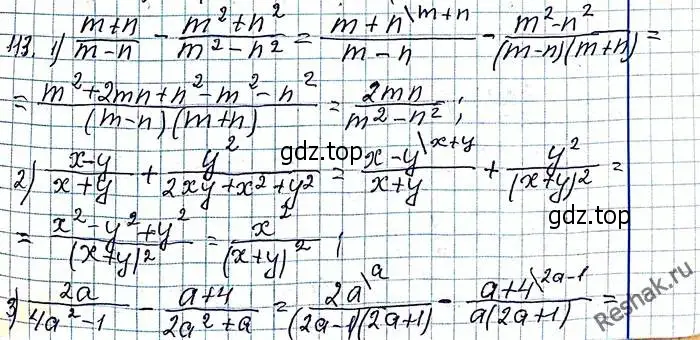 113. 1) (m+n)/(m-n) - (m²+n²)/(m²-n²) = (m+n\m+n)/(m-n) - (m²-n²)/((m-n)(m+n)) =
= (m²+2mn+n²-m²-n²)/((m-n)(m+n)) = 2mn/(m²-n²);
gdz.top
2) (x-y)/(x+y) + y²/(2xy+x²+y²) = (x-y\x+y)/(x+y) + y²/(x+y)² =
gdz.top
= (x²-y²+y²)/(x+y)² = x²/(x+y)²;
3) 2a/(4a²-1) - (a+4)/(2a²+a) = (2a\a)/((2a-1)(2a+1)) - (a+4\2a-1)/(a(2a+1)) =
Reshak.ru